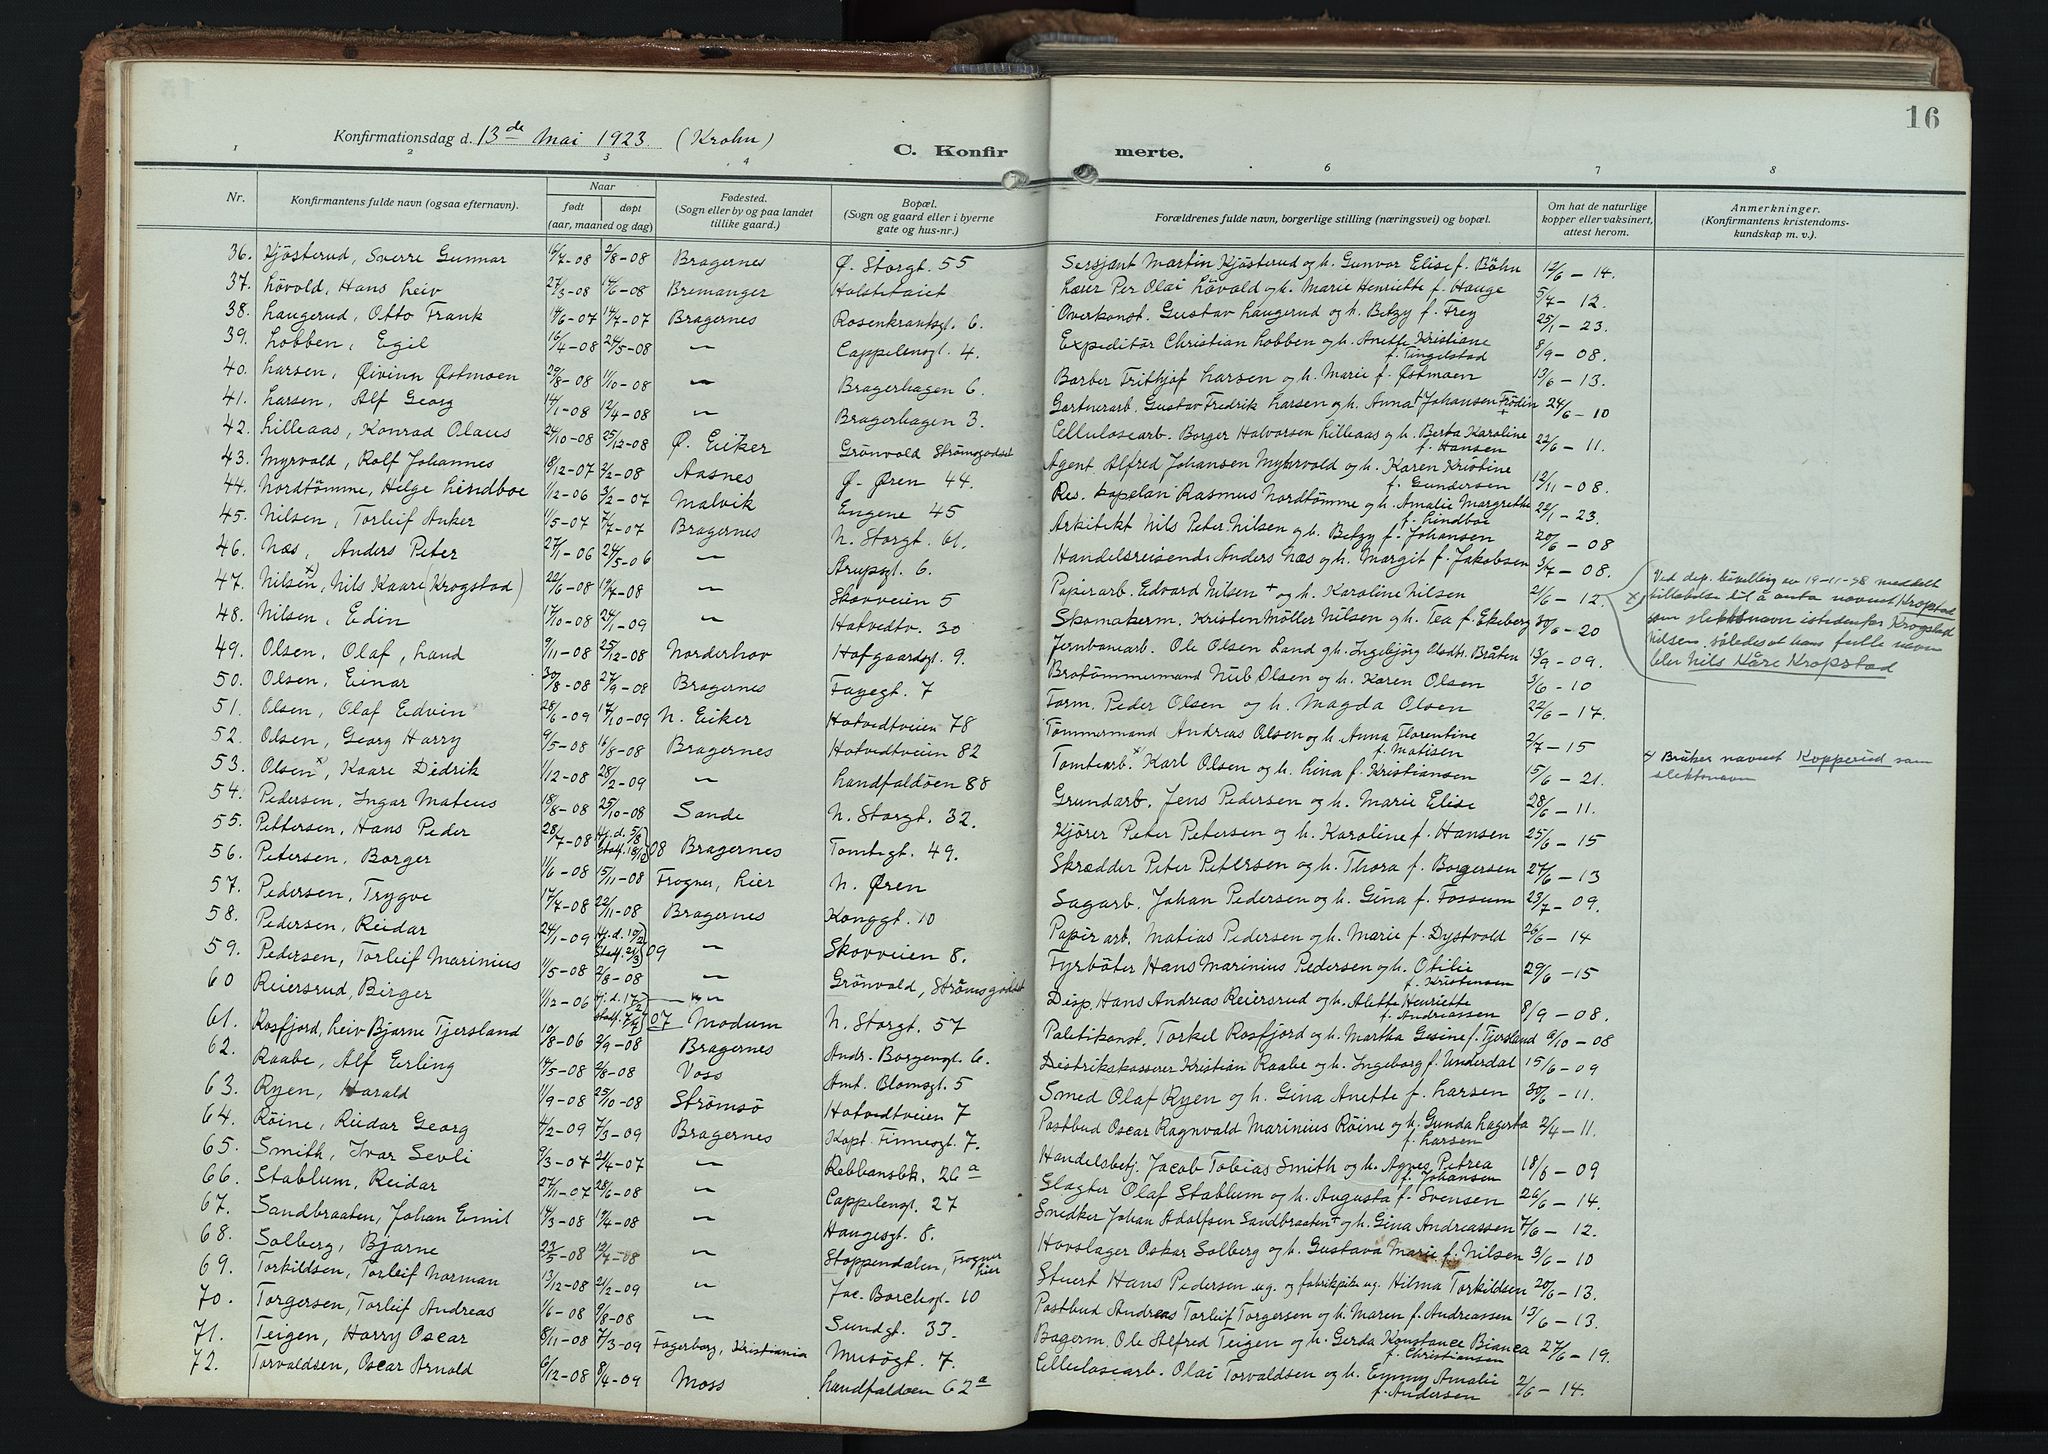 16
Konfirmationsdag d. 13de Mai 1923 (Krohn)
C. Konfirmerte.
1 2 3 4 6 7 8
Nr. Konfirmantens fulde navn (ogsaa efternavn). Naar født døpt (aar, maaned og dag) Fødested. (Sogn eller by og paa landet tillike gaard.) Bopæl. (Sogn og gaard eller i byerne gate og hus-nr.) Forældrenes fulde navn, borgerlige stilling (næringsvei) og bopæl. Om hat de naturlige kopper eller vaksinert, attest herom. Anmerkninger. (Konfirmantens kristendomskundskap m. v.).
36. Kjösterud, Sverre Gunnar 16/7-08 2/8-08 Bragernes Ø. Storgt. 55 Sersjant Martin Kjösterud og h. Gunvor Elise f. Böhn 12/6-14.
37. Lövold, Hans Leiv 27/3-08 14/6-08 Bremanger Holstetaiet Lærer Per Olai Lövold og h. Marie Henriette f. Hauge 5/7-12.
38. Laugerud, Otto Frank 14/6-07 14/7-07 Bragernes Rosenkrantsgt. 6. Overkonst. Gustav Laugerud og h. Betzy f. Frey 25/1-23.
39. Lobben, Egil 16/4-08 24/5-08 — Cappelensgt. 4. Expeditör Christian Lobben og h. Anette Kristiane f. Tingelstad 8/9-08.
40. Larsen, Øivinn Østmoen 29/8-08 11/10-08 — Bragerhagen 6. Barber Frithjof Larsen og h. Marie f. Østmoen 13/6-13.
41. Larsen, Alf Georg 14/1-08 12/4-08 — Bragerhagen 3. Gartnerarb. Gustav Fredrik Larsen og h. Anna Johansen Frödin 24/6-10
42. Lilleaas, Konrad Olaus 24/10-08 25/12-08 Ø. Eiker Grönvold Strömsgodset Cellulosearb. Borger Halvorsen Lilleaas og h. Berta Karoline f. Hansen 22/6-11.
43. Myrvold, Rolf Johannes 18/12-07 2/2-08 Aasnes Ø. Øren 44. Agent Alfred Johansen Myhrvold og h. Karen Kristine f. Gundersen 12/11-08.
44. Nordtömme, Helge Lindboe 1/12-06 3/2-07 Malvik Engene 45 Res. kapelan Rasmus Nordtömme og h. Amalie Margrethe f. Lindboe 22/1-23.
45. Nilsen, Torleif Anker 1/5-07 7/7-07 Bragernes N. Storgt. 61. Arkitekt Nils Peter Nilsen og h. Betzy f. Johansen 20/6-08
46. Næs, Anders Peter 27/1-06 24/5-06 — Arupsgt. 6. Handelsreisende Anders Næs og h. Margit f. Jakobsen 3/7-08.
47. Nilsen x), Nils Kaare (Krogstad) 22/6-08 19/7-08 — Skovveien 5 Papirarb. Edvard Nilsen + og h. Karoline Nilsen 2/6-12.
x) Ved dep. bevilling av 19-11-28 meddelt
tillatelse til å anta navnet Kropstad
som slektsnavn istedenfor Krogstad
Nilsen, således at hans fulle navn
blir Nils Kåre Kropstad
48. Nilsen, Edin 17/10-08 24/1-09 — Hotvedtv. 30 Skomakerm. Kristen Möller Nilsen og h. Tea f. Ekeberg 30/6-20
49. Olsen, Olaf, Land 9/11-08 25/12-08 Norderhov Hofgaardsgt. 9. Jernbanearb. Ole Olsen Land og h. Ingebjörg Olsdtr. Bråten 13/9-09.
50. Olsen, Einar 30/8-08 27/9-08 Bragernes Fayegt. 7 Brotömmermand Nub Olsen og h. Karen Olsen 3/6-10
51. Olsen, Olaf Edvin 28/6-09 17/10-09 N. Eiker Hotvedtveien 78 Form. Peder Olsen og h. Magda Olsen 22/6-17.
52. Olsen, Georg Harry 9/5-08 16/8-08 Bragernes Hotvedtveien 82 Tömmermand Andreas Olsen og h. Anna Florentine f. Matisen 2/7-15
53. Olsen x, Kaare Didrik 1/12-08 28/2-09 — Landfaldöen 88 Tomtearb. Karl Olsen og h. Lina f. Kristiansen 15/6-21.
x) Bruker navnet Kopperud som
slektsnavn
54. Pedersen, Ingar Mateus 18/8-08 25/10-08 Sande N. Storgt. 32. Grundarb. Jens Pedersen og h. Marie Elise 28/6-11.
55. Pettersen, Hans Peder 28/7-08 Hj.d. 5/8 Stadf. 18/10 08 Bragernes Tomtegt. 49. Kjörer Peter Petersen og h. Karoline f. Hansen 25/6-15
56. Petersen, Borger 11/6-08 15/11-08 Frogner, hier N. Øren Skrædder Peter Petersen og h. Thora f. Borgersen 27/6-13
57. Pedersen, Trygve 17/7-08 22/11-08 Bragernes Konggt. 10 Sagarb. Johan Pedersen og h. Gina f. Fossum 23/7-09.
58. Pedersen, Reidar 24/1-09 Hj.d. 19/2 Stadf. 21/3 09 — Skovveien 8. Papirarb. Matias Pedersen og h. Marie f. Dystvold 26/6-14
59. Pedersen, Torleif Marinius 1/5-08 2/8-08 — Grönvold, Strömsgodset Fyrböter Hans Marinius Pedersen og h. Otilie f. Kristensen 29/6-15
60 Reiersrud, Birger 1/12-06 Hj.d. 17/2 Stadf. 7/7 07 Modum N. Storgt. 57 Disp. Hans Andreas Reiersrud og h. Alette Henriette f. Andreassen 8/9-08.
61. Rosfjord, Leiv Bjarne Tjersland 10/8-06 2/9-08 Bragernes Andr. Borgengt. 6. Politikonst. Torkel Rosfjord og h. Martha Gesine f. Tjersland 6/10-08
62. Raabe, Alf Erling 14/5-08 2/8-08 Voss Amt. Blomsgt. 5 Distriktskasserer Kristian Raabe og h. Ingeborg f. Underdal 15/6-09
63. Ryen, Harald 11/9-08 25/10-08 Strömsö Hotvedtveien 7 Smed Olaf Ryen og h. Gina Anette f. Larsen 30/6-11.
64. Röine, Reidar Georg 4/2-09 7/3-09 Bragernes Kapt. Finnesgt. 7. Postbud Oscar Ragnvald Marinius Röine og h. Gunda Lagerta f. Larsen 2/4-11.
65. Smith, Ivar Sevli 9/3-07 21/4-07 — Rebbansbk. 26a Handelsbetj. Jacob Tobias Smith og h. Agnes Petrea f. Johansen 18/8-09
66. Stablum, Reidar 27/11-07 28/6-08 — Cappelengt. 27 Slagter Olaf Stablum og h. Augusta f. Svensen 26/6-14.
67. Sandbraaten, Johan Emil 14/3-08 19/4-08 — Haugesgt. 8. Snedker Johan Adolfsen Sandbraaten + og h. Gina Andreassen 7/6-12.
68. Solberg, Bjarne 23/5-08 12/7-08 — Stoppendalen, Frogner hier Hovslager Oskar Solberg og h. Gustava Marie f. Nilsen 3/6-10
69. Torkildsen, Torleif Norman 13/12-08 21/2-09 — Jac. Borchsgt. 10 Stuert Hans Pedersen ug. og fabrikpike ug. Hilma Torkildsen 20/6-13.
70. Torgersen, Torleif Andreas 1/6-08 9/8-08 — Sundgt. 33. Postbud Andreas Torleif Torgersen og h. Maren f. Andreassen 13/6-13.
71. Teigen, Harry Oscar 8/11-08 7/3-09 Fagerborg, Kristiania Musögt. 7. Bagerm. Ole Alfred Teigen og h. Gerda Konstance Bianca f. Christiansen 27/6-19.
72. Torvaldsen, Oscar Arnold 6/12-08 8/4-09 Moss Landfaldöen 62a Cellulosearb. Olai Torvaldsen og h. Emmy Amalie f. Andersen 2/6-14.